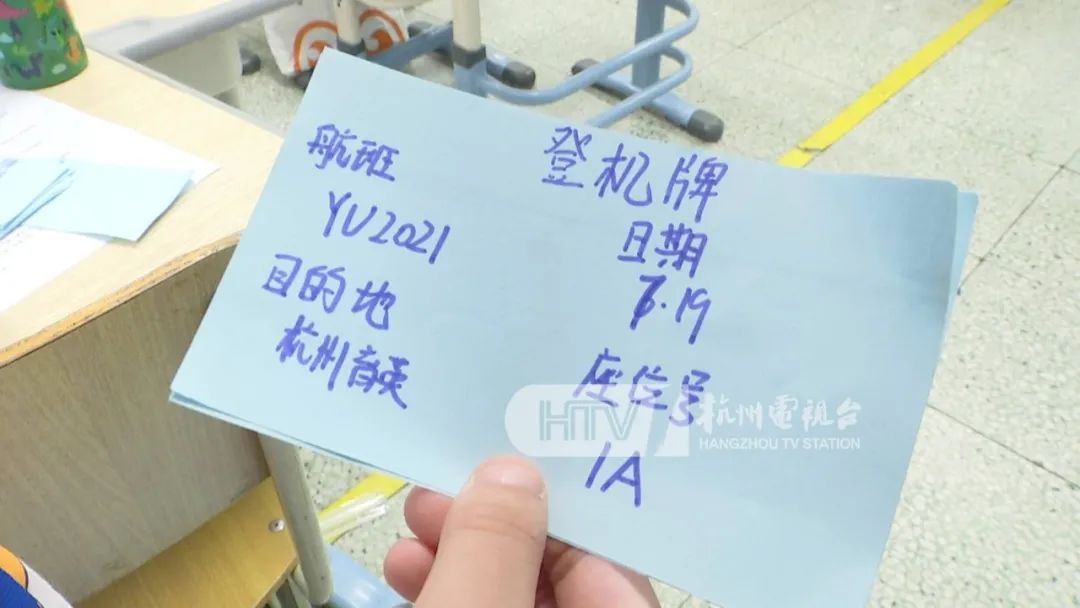 登机牌
航班
YU2021
目的地
杭州育英
日期
6.19
座位号
1A
HTV
杭州電視台
HANGZHOU TV STATION